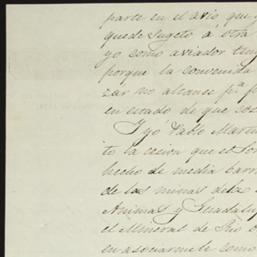 parte en el avio, que
quede sugeto á otra
yo como aviador
porque la convenida
zar no alcanse pª
en estado de que
Yyo Pablo
to la cesion que el
hecho de media barra
de las minas
Animas y Guadalu
el Mineral de
en asociarmele como